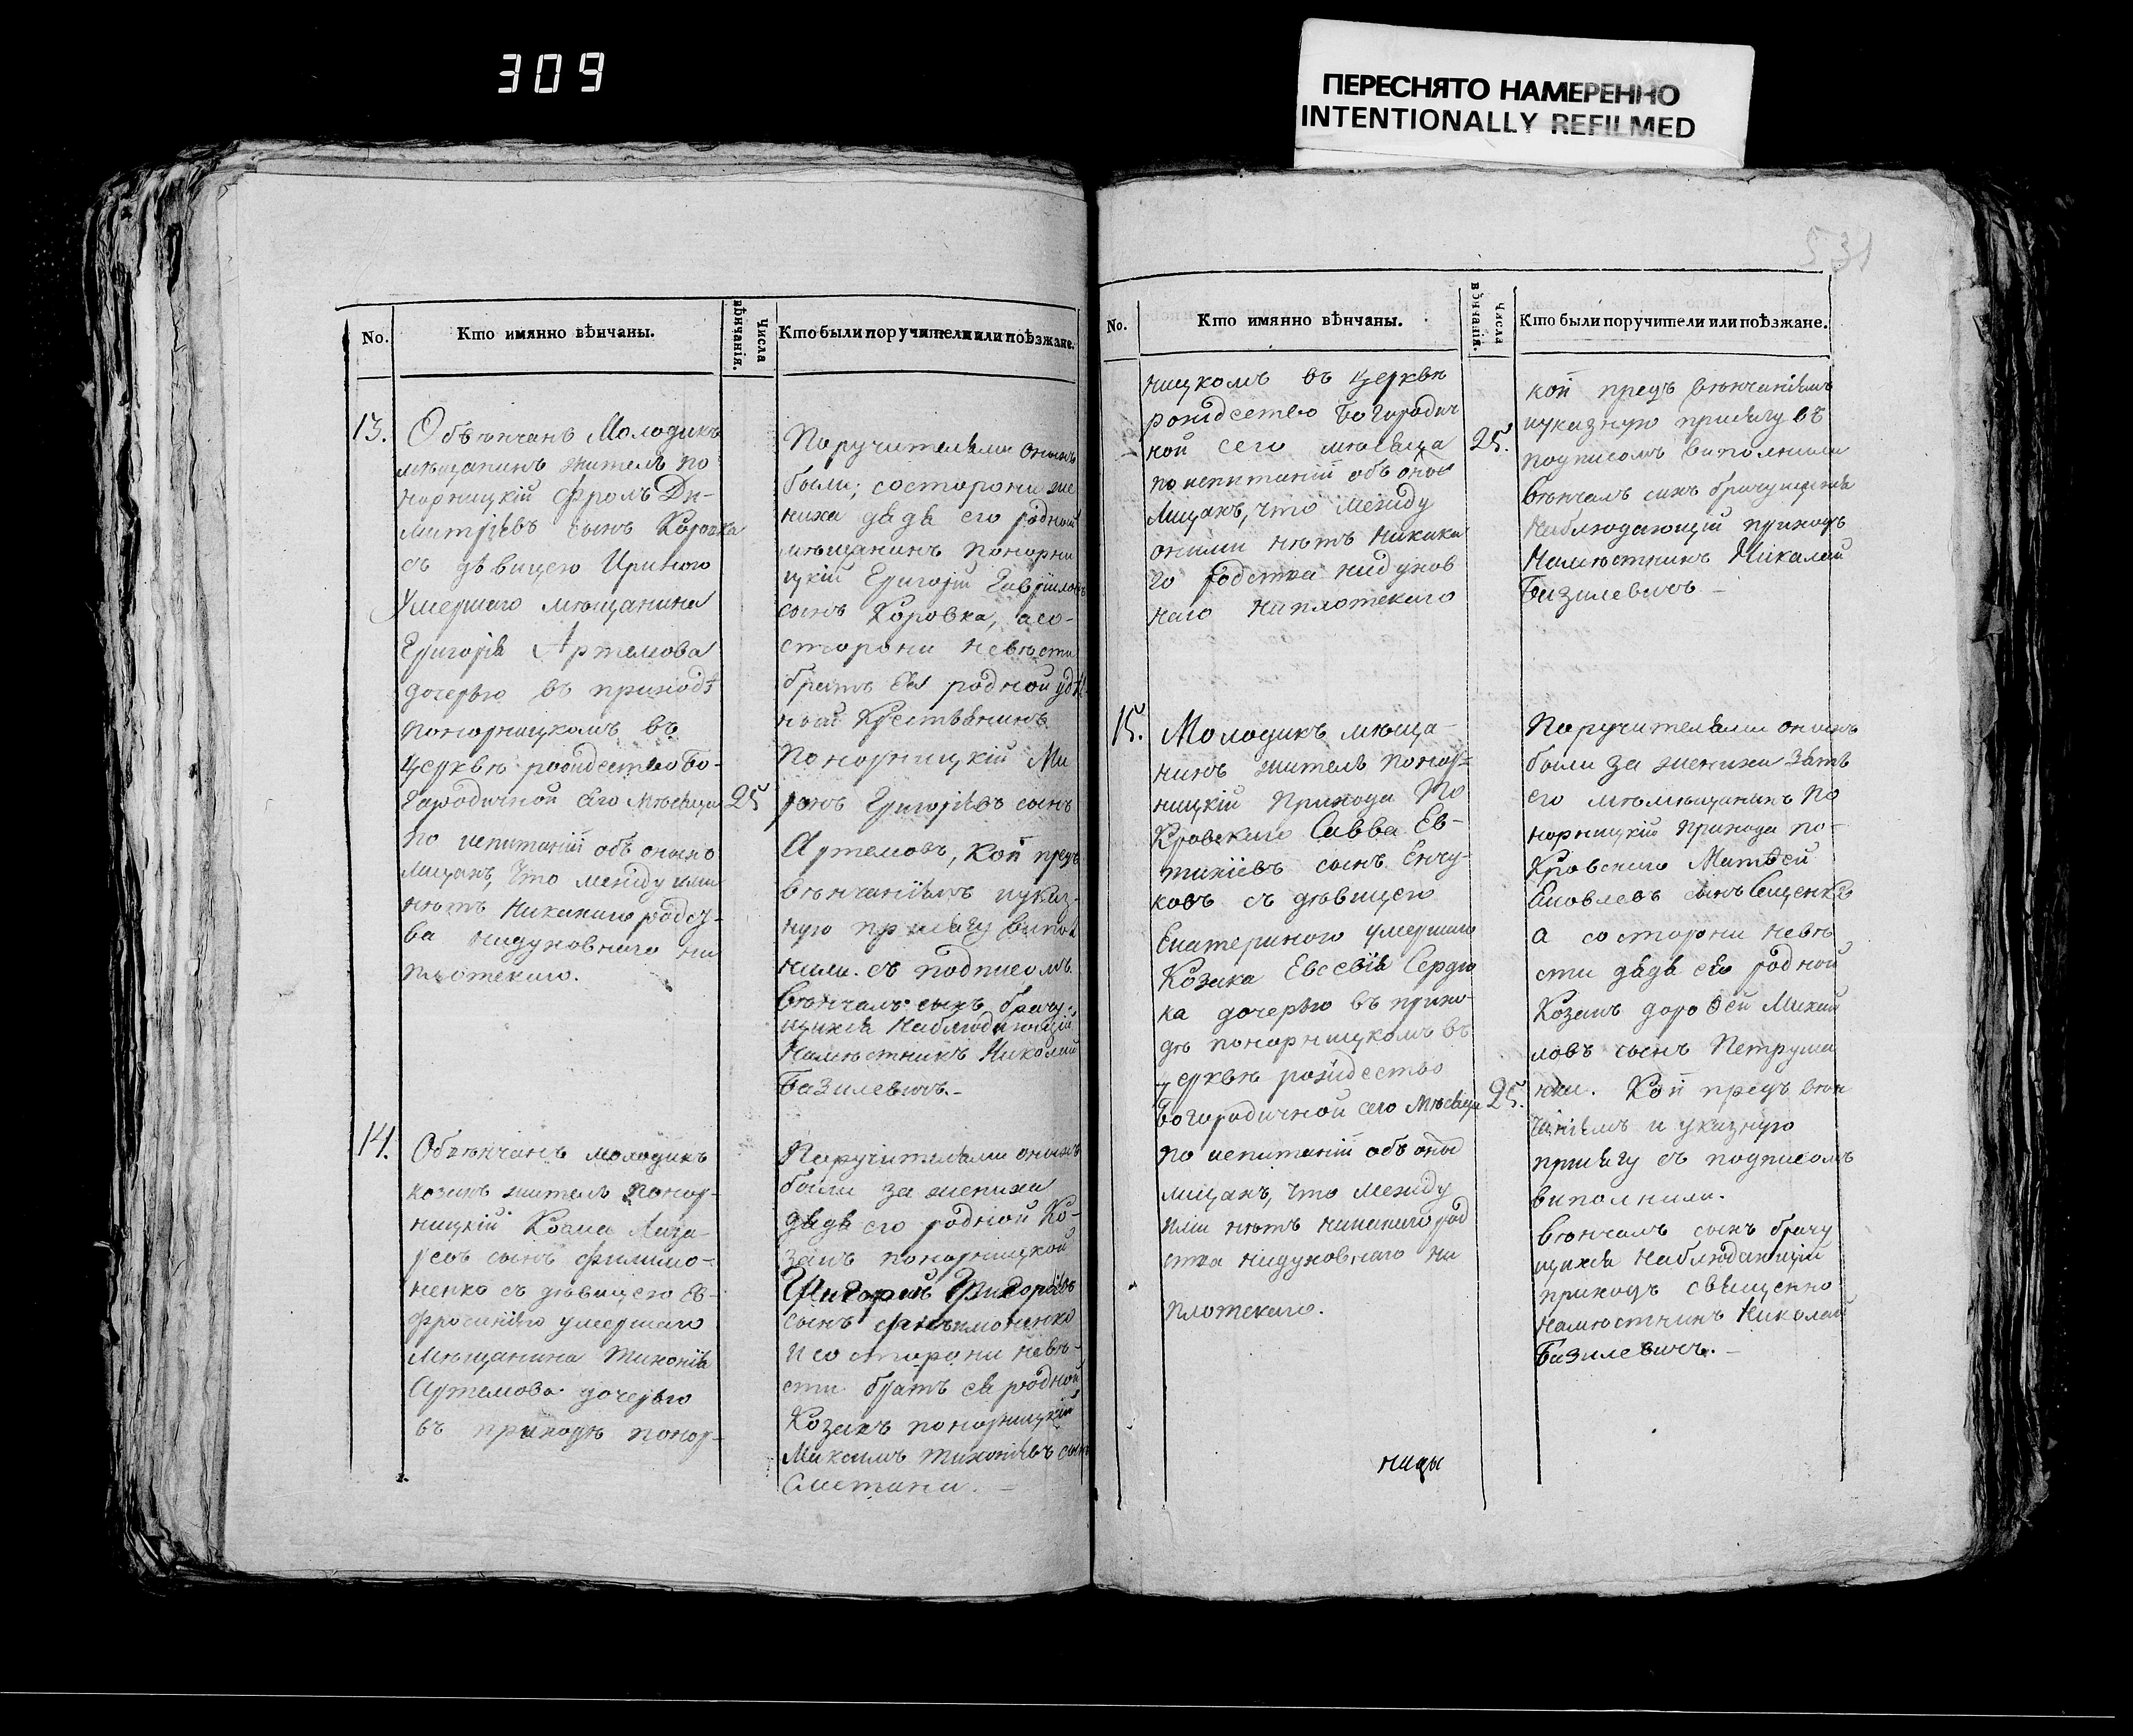 309
ПЕРЕСНЯТО НАМЕРЕННО
INTENTIONALLY REFILMED
531
No.
Кто имянно вѣнчаны.
Числа вѣнчанія.
Кто были поручители или поѣзжане.
13.
Обвѣнчанъ Молодикъ
мѣщанинъ жителъ по
норницкій Фролъ Ди-
митріевъ сынъ Коровка
съ дѣвицею Ириною
Умершаго мѣщанина
Григорія Артемова
дочерью въ приходѣ
понорницкомъ въ
церквѣ рождество Бо-
городичной сего мѣсяца
25
по испитаніи объ оныхъ
лицахъ, что между ими
нѣтъ никакаго родст-
ва нидуховнаго ни
плотскаго.
Поручителями онимъ
были; состорони же
ниха дядя его родной
мѣщанинъ понорни
цкій Григорій Гавриловъ
сынъ Коровка, асо-
сторони невѣсти
братъ ея родной удѣл
ный Крестьянинъ
Понорницкій Ми
ронъ Григорьевъ сынъ
Артемовъ, кой предъ
вѣнчаніемъ иуказ-
ную присягу випол
нили. съ подписомъ.
Вѣнчалъ сихъ брачу-
щихся Наблюдающій
Намѣстникъ Николай
Базилевичъ.-
14.
Обвѣнчанъ молодикъ
козакъ жителъ понор-
ницкій Козма Лаза-
ревъ сынъ Филимо-
ненко съ дѣвицею Ев-
фросиніею умершаго
Мѣщанина Тихонія
Артемова дочерью
въ приходѣ понор-
Поручителями онимъ
были за жениха
дядя его родной Ко-
закъ понорницкой
Григорій Григорьевъ
сынъ Филимоненко
И со сторони невѣ-
сти братъ ея родной
Козакъ понорницкій
Максимъ Тихоніевъ сынъ
Сметана. -
No.
Кто имянно вѣнчаны.
Числа вѣнчанія.
Кто были поручители или поѣзжане.
ницкомъ въ церквѣ
рождество Богородич
ной сего мѣсяца
25.
по испитаніи объ оныхъ
лицахъ, что между
оними нѣтъ никака
го родства нидухов
наго ниплотскаго
кой предъ вѣнчаніемъ
иуказную присягу въ
подписомъ виполнили
Вѣнчалъ сихъ брачущихся
Наблюдающій приходъ
Намѣстникъ Николай
Базилевичъ -
15.
Молодикъ мѣща-
нинъ жителъ понор-
ницкій прихода По
кровскаго Савва Ев-
тихіевъ сынъ Енчу-
ковъ съ дѣвицею
Екатериною умершаго
Козака Евсевія Сердю
ка дочерью въ прихо-
дѣ понорницкомъ въ
церквѣ рождество
Богородичной сего мѣсяца
25.
по испитаніи объ оныхъ
лицахъ, что между
ими нѣтъ никакаго род
ства нидуховнаго ни
плотскаго.
Поручителями онимъ
были за жениха зять
его мѣщанинъ По
норницкій прихода по-
кровскаго Матѳей
Яковлевъ сынъ Сещенко
а со сторони невѣ
сти дядя ея родной
Козакъ Дороѳей Михай
ловъ сынъ Петруша
нки. Кой предъ вѣн
чаніемъ и указную
присягу съ подписомъ
виполнили.
Вѣнчалъ сихъ брачу
щихся Наблюдающій
приходъ священно
Намѣстникъ Николай
Базилевичъ. -
ницы